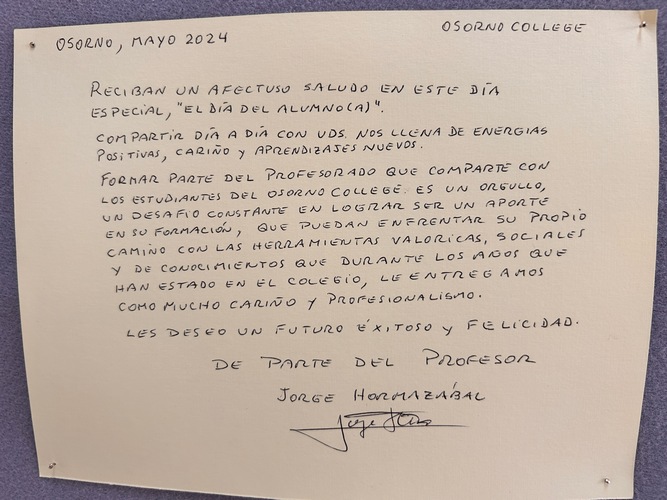 OSORNO, MAYO 2024
OSORNO COLLEGE
RECIBAN UN AFECTUSO SALUDO EN ESTE DÍA
ESPECIAL, "EL DÍA DEL ALUMNO(A)".
COMPARTIR DÍA A DÍA CON UDS. NOS LLENA DE ENERGIAS
POSITIVAS, CARIÑO Y APRENDIZAJES NUEVOS.
FORMAR PARTE DEL PROFESORADO QUE COMPARTE CON
LOS ESTUDIANTES DEL OSORNO COLLEGE. ES UN ORGULLO,
UN DESAFIO CONSTANTE EN LOGRAR SER UN APORTE
EN SU FORMACIÓN, QUE PUEDAN ENFRENTAR SU PROPIO
CAMINO CON LAS HERRAMIENTAS VALORICAS, SOCIALES
Y DE CONOCIMIENTOS QUE DURANTE LOS AÑOS QUE
HAN ESTADO EN EL COLEGIO, LE ENTREGAMOS
COMO MUCHO CARIÑO Y PROFESIONALISMO.
LES DESEO UN FUTURO ÉXITOSO Y FELICIDAD.
DE PARTE DEL PROFESOR
JORGE HORMAZÁBAL